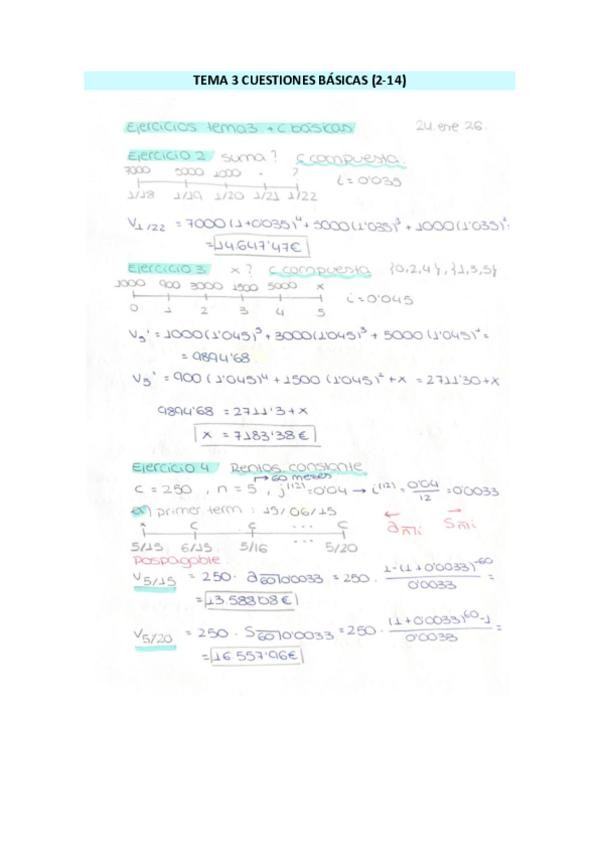 TEMA 3 CUESTIONES BÁSICAS (2-14)
Ejercicios tema 3 + C básicas 24 ene 26.
Ejercicio 2 suma? C compuesta.
7000 5000 1000 · ?
i = 0'035
1/18 1/19 1/20 1/21 1/22
V1/22 = 7000 (1+0'035)⁴ + 5000 (1'035)³ + 1000 (1'035)² =
= 14.647'47€
Ejercicio 3 x? C compuesta {0,2,4}, {1,3,5}
1000 900 3000 1500 5000 x
i = 0'045
0 1 2 3 4 5
V5' = 1000 (1'045)⁵ + 3000 (1'045)³ + 5000 (1'045)¹ =
= 9894'68
V5' = 900 (1'045)⁴ + 1500 (1'045)² + x = 2711'30 + x
9894'68 = 2711'3 + x
x = 7183'38€
Ejercicio 4 Rentas constante
→ 60 meses
C = 250 , n = 5 , j⁽¹²⁾ = 0'04 → i⁽¹²⁾ = 0'04/12 = 0'0033
a) primer term : 15/06/15
← a n|i → S n|i
x C C ... C
5/15 6/15 5/16 ... 5/20
Pospagable
V5/15 = 250 · a 60|0'0033 = 250 · 1-(1+0'0033)⁻⁶⁰ / 0'0033 =
= 13.583'08€
V5/20 = 250 · S 60|0'0033 = 250 · (1+0'0033)⁶⁰-1 / 0'0033 =
= 16.557'96€